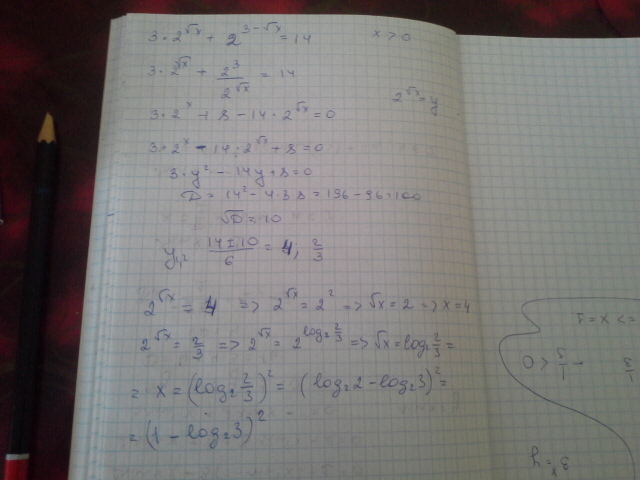 3·2^√x + 2^(3-√x) = 14    x > 0
3·2^√x + 2^3/2^√x = 14
2^√x = y
3·2^x + 8 - 14·2^√x = 0
3·2^x - 14·2^√x + 8 = 0
3·y² - 14y + 8 = 0
D = 14² - 4·3·8 = 196 - 96 = 100
√D = 10
y₁,₂ (14 ± 10)/6 = 4; 2/3
2^√x = 4 => 2^√x = 2² => √x = 2 => x = 4
2^√x = 2/3 => 2^√x = 2^(log₂ 2/3) => √x = log₂ 2/3 =
= x = (log₂ 2/3)² = (log₂2 - log₂3)² =
= (1 - log₂3)²
=> x = 1